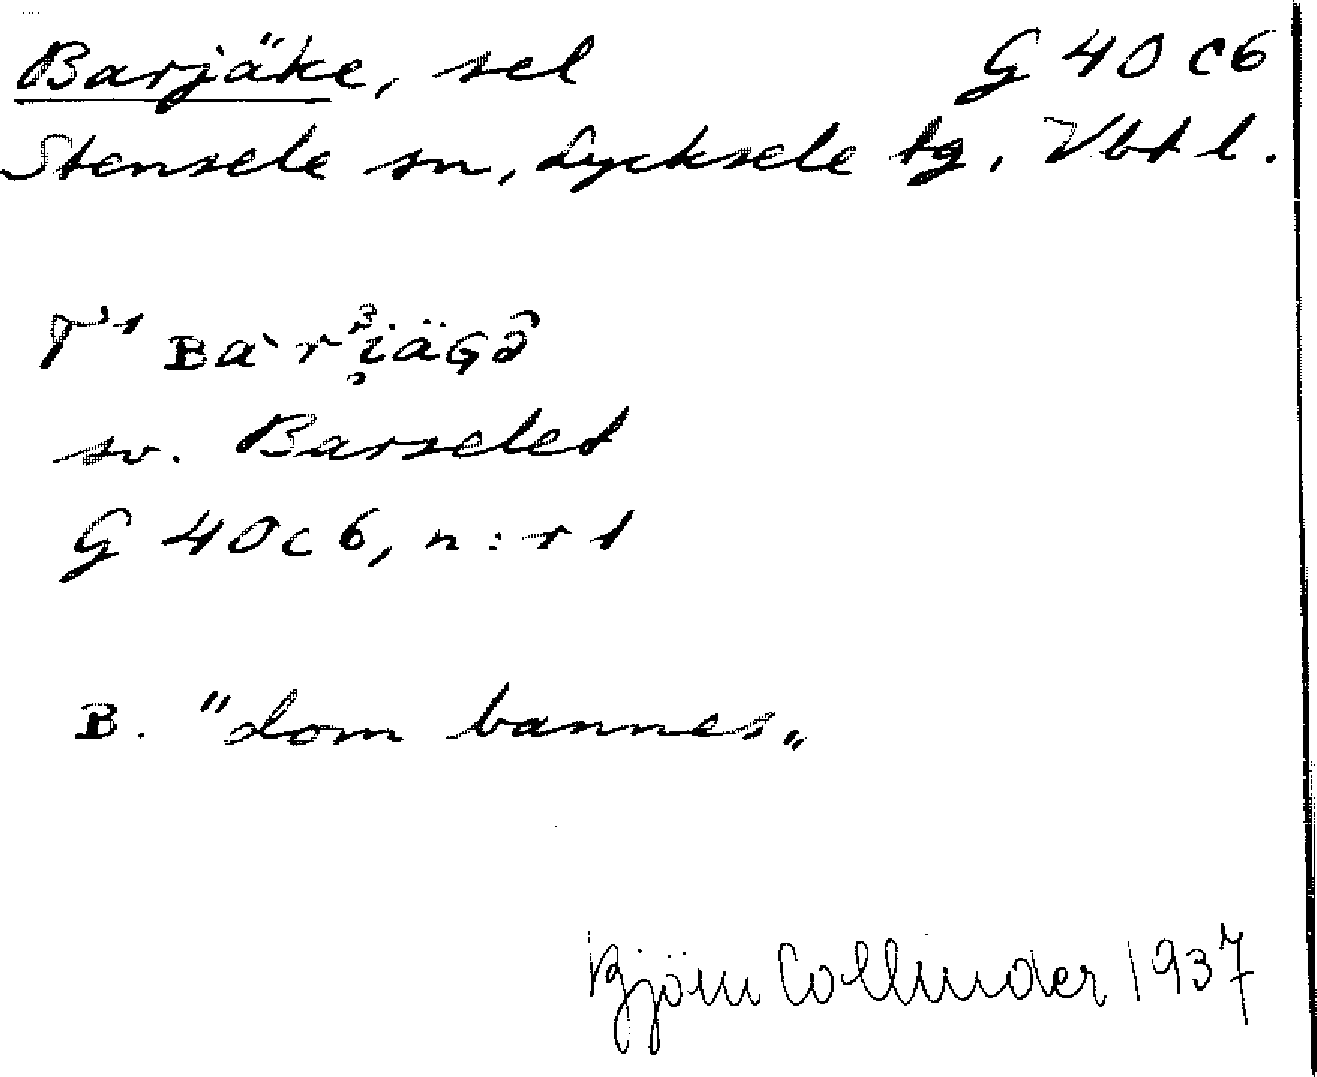 Barjäke, sel G 40 c6
Stensele sn, Lycksele tg, Vbtl.
sv. Barselet
G 40c6, n:r 1
B. "dom bannes„
Björn Collinder 1937